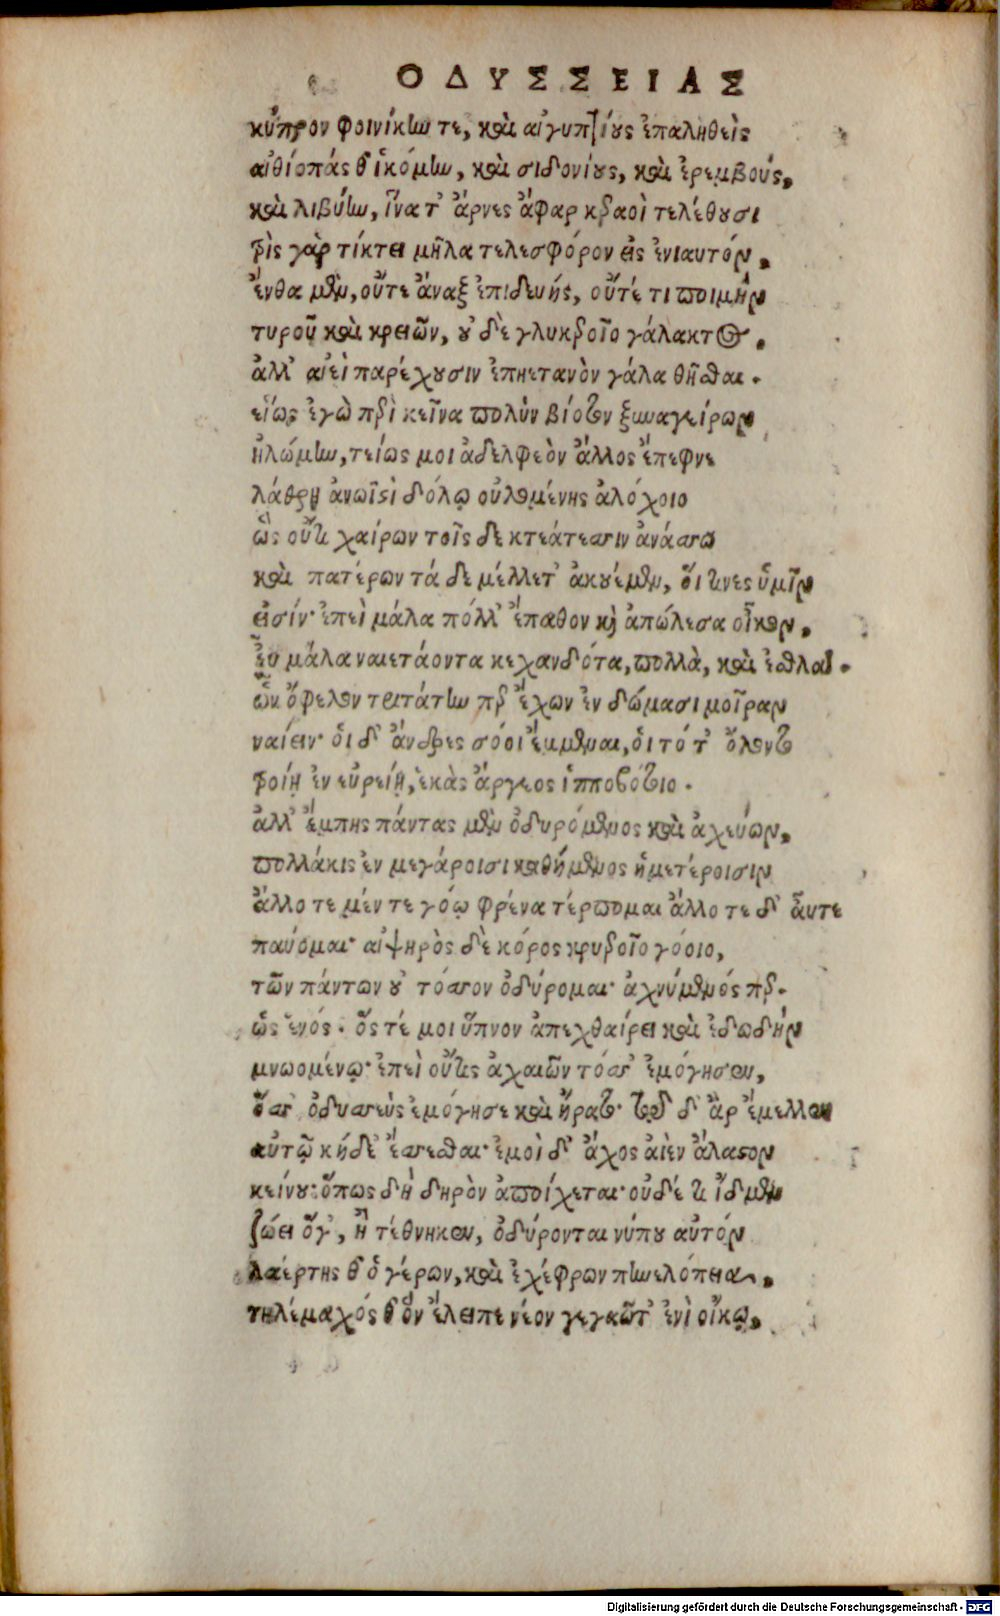 ΟΔΥΣΣΕΙΑΣ
κύπρον φοινίκην τε, καὶ αἰγυπτίους ἐπαληθεὶς
αἰθίοπάς θ' ἱκόμην, καὶ σιδονίους, καὶ ἐρεμβούς,
καὶ λιβύην, ἵνα τ' ἄρνες ἄφαρ κεραοὶ τελέθουσι
τρὶς γὰρ τίκτει μῆλα τελεσφόρον εἰς ἐνιαυτόν,
ἔνθα μὲν, οὔτε ἄναξ ἐπιδευής, οὔτέ τι ποιμὴν
τυροῦ καὶ κρειῶν, οὐδὲ γλυκεροῖο γάλακτος,
ἀλλ' αἰεὶ παρέχουσιν ἐπηετανὸν γάλα θῆσθαι.
εἵως ἐγὼ περὶ κεῖνα πολὺν βίοτον ξυναγείρων
ἠλώμην, τείως μοι ἀδελφεὸν ἄλλος ἔπεφνε
λάθρῃ ἀνωϊστὶ δόλῳ οὐλομένης ἀλόχοιο
ὣς οὔτι χαίρων τοῖς δε κτεάτεσσιν ἀνάσσω
καὶ πατέρων τά δε μέλλετ' ἀκουέμεν, οἵ τινες ὑμῖν
εἰσίν· ἐπεὶ μάλα πόλλ' ἔπαθον καὶ ἀπώλεσα οἶκον,
εὖ μάλα ναιετάοντα κεχανδότα, πολλὰ, καὶ ἐσθλά.
ὧν ὄφελον τριτάτην περ ἔχων ἐν δώμασι μοῖραν
ναίειν· οἱ δ' ἄνδρες σόοι ἔμμεναι, οἱ τότ' ὄλοντο
τροίῃ ἐν εὐρείῃ, ἑκὰς ἄργεος ἱπποβότοιο.
ἀλλ' ἔμπης πάντας μὲν ὀδυρόμενος καὶ ἀχεύων,
πολλάκις ἐν μεγάροισι καθήμενος ἡμετέροισιν
ἄλλο τε μέν τε γόῳ φρένα τέρπομαι ἄλλο τε δ' αὖτε
παύομαι· αἰψηρὸς δὲ κόρος κρυεροῖο γόοιο,
τῶν πάντων οὐ τόσσον ὀδύρομαι· ἀχνύμενός περ.
ὡς ἑνός. ὅς τέ μοι ὕπνον ἀπεχθαίρει καὶ ἐδωδὴν
μνωομένῳ· ἐπεὶ οὔτις ἀχαιῶν τόσσ' ἐμόγησεν,
ὅσσ' ὀδυσσεὺς ἐμόγησε καὶ ἤρατο· τῷ δ' ἄρ' ἔμελλεν
αὐτῷ κήδε' ἔσσεσθαι· ἐμοὶ δ' ἄχος αἰὲν ἄλαστον
κείνου· ὅπως δὴ δηρὸν ἀποίχεται· οὐδέ τι ἴδμεν
ζώει ὅγ', ἢ τέθνηκεν, ὀδύρονται νύπου αὐτόν
λαέρτης θ' ὁ γέρων, καὶ ἐχέφρων πηνελόπεια,
τηλέμαχός θ' ὃν ἔλειπε νέον γεγαῶτ' ἐνὶ οἴκῳ,
Digitalisierung gefördert durch die Deutsche Forschungsgemeinschaft - DFG